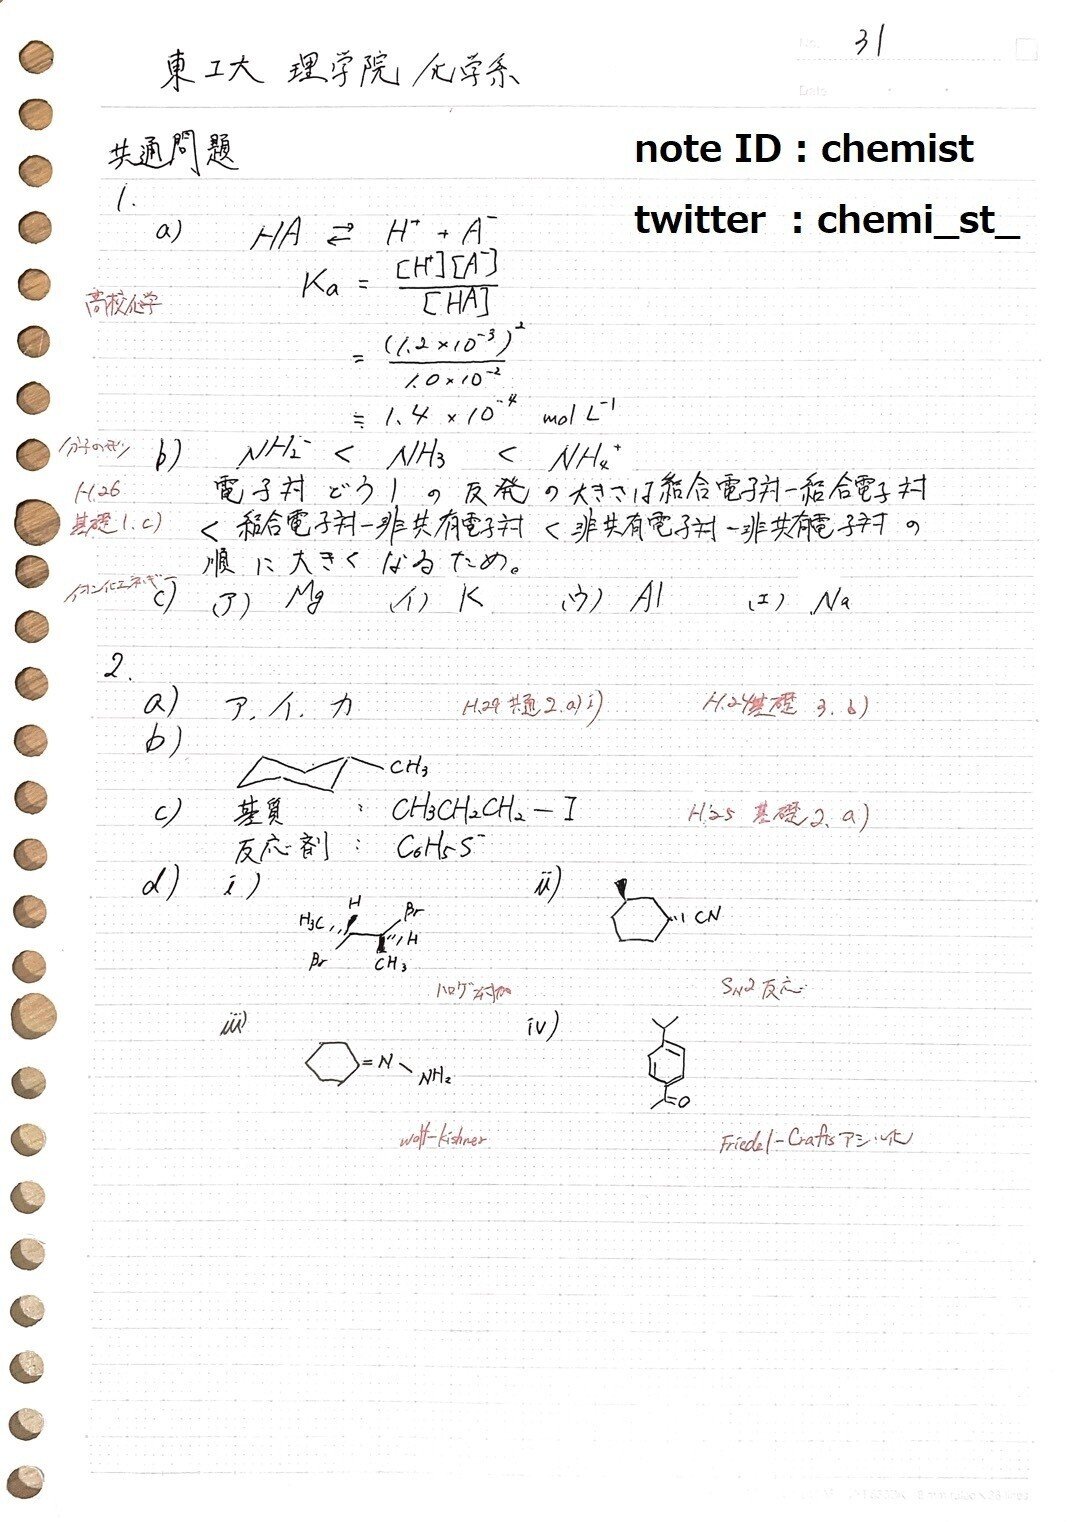 31
東工大 理学院 化学系
note ID : chemist
twitter : chemi_st_
共通問題
1.
a) HA ⇄ H⁺ + A⁻
Ka = [H⁺][A⁻] / [HA]
高校化学
= (1.2×10⁻³)² / 1.0×10⁻²
≒ 1.4 × 10⁻⁴ mol L⁻¹
b) NH₂⁻ < NH₃ < NH₄⁺
H.26
基礎1.c)
電子対どうしの反発の大きさは結合電子対-結合電子対
< 結合電子対-非共有電子対 < 非共有電子対-非共有電子対の
順に大きくなるため。
イオン化エネルギー
c) (ア) Mg (イ) K (ウ) Al (エ) Na
2.
a) ア、イ、カ H.29 共通2.a)i) H.24基礎 3.b)
b)
CH₃
c) 基質 : CH₃CH₂CH₂-I H.25 基礎2.a)
反応剤 : C₆H₅S⁻
d) i) ii)
H
H₃C Br
H
Br CH₃
CN
ハロゲン付加 SN2反応
iii) iv)
=N
NH₂
O
Wolff-Kishner Friedel-Craftsアシル化